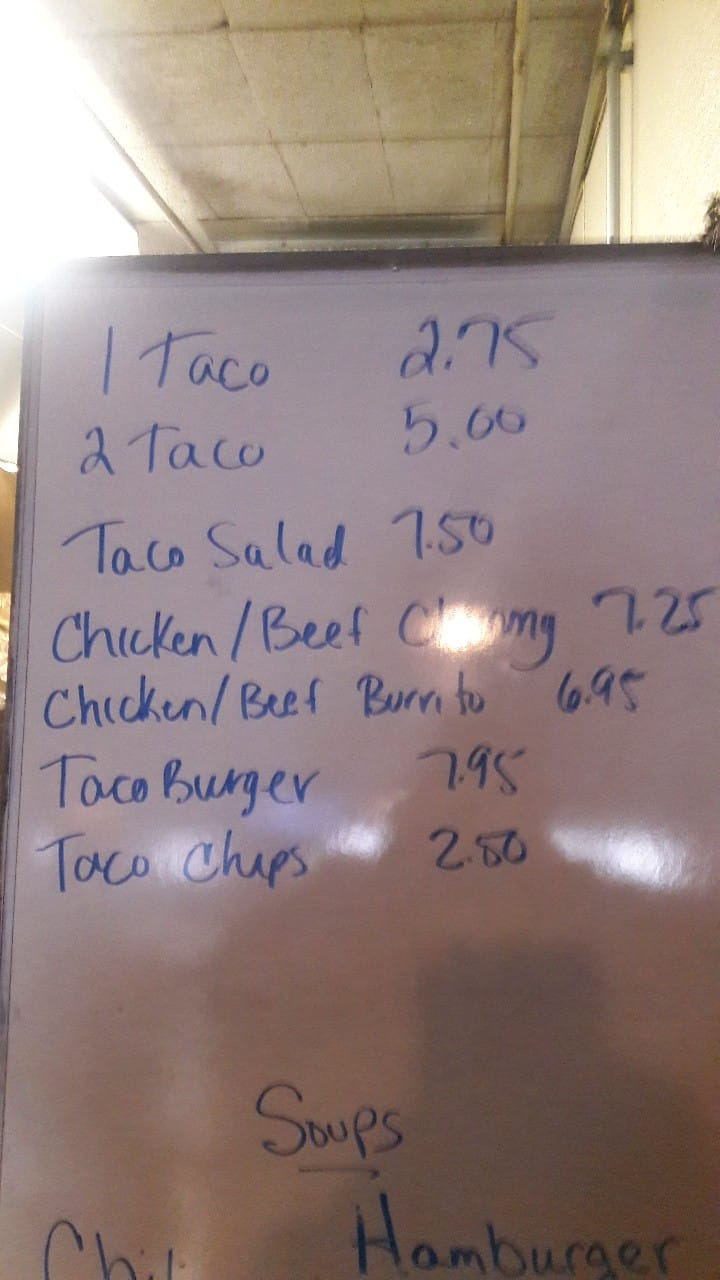 1 Taco 2.75
2 Taco 5.00
Taco Salad 7.50
Chicken/Beef 7.25
Chicken/Beef Burrito 6.95
Taco Burger 7.95
Taco Chips 2.50
Soups
Chili Hamburger